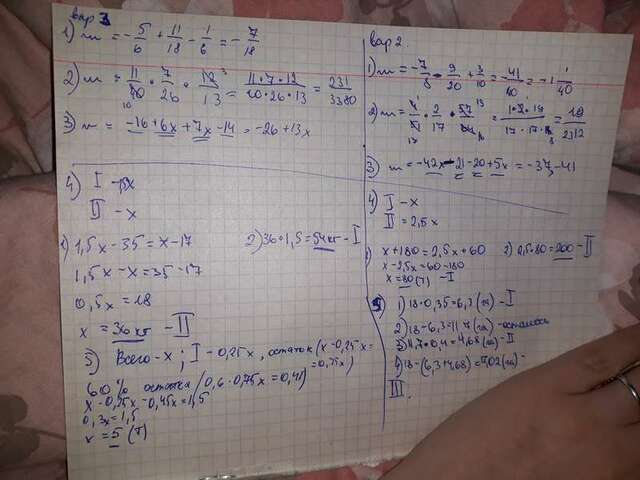 вар 3
1) m = -5/6 + 11/18 - 1/6 = -7/18
2) m = 11/80 · 7/26 · 12/13 = 11·7·12/20·26·13 = 231/3380
3) m = -16+6x+7x-14 = -26+13x
4) I -
II - x
1) 1,5x-35=x-17
1,5x-x=35-17
0,5x=18
x = 36кг - II
2) 36·1,5=54кг - I
5) Всего-x; I-0,25x, остаток (x-0,25x=
=0,75x)
60% остатка (0,6·0,75x=0,45)
x-0,25x-0,45x=1,5
0,3x=1,5
x=5 (т)
вар 2.
1) m = -7/8 - 9/20 + 3/10 = -41/40 = -1 1/40
2) m =
3) m = -42x-21-20+5x = -37-41
4) I - x
II = 2,5x
x+180=2,5x+60
x-2,5x=60-180
x=80(т) - I
2) 2,5·80=200 - II
5) 1) 18·0,35=6,3 (га) - I
2) 18-6,3=11,7 (га) - осталось
3) 11,7·0,4=4,68 (га) - II
4) 18-(6,3+4,68)=7,02 (га) -
III.